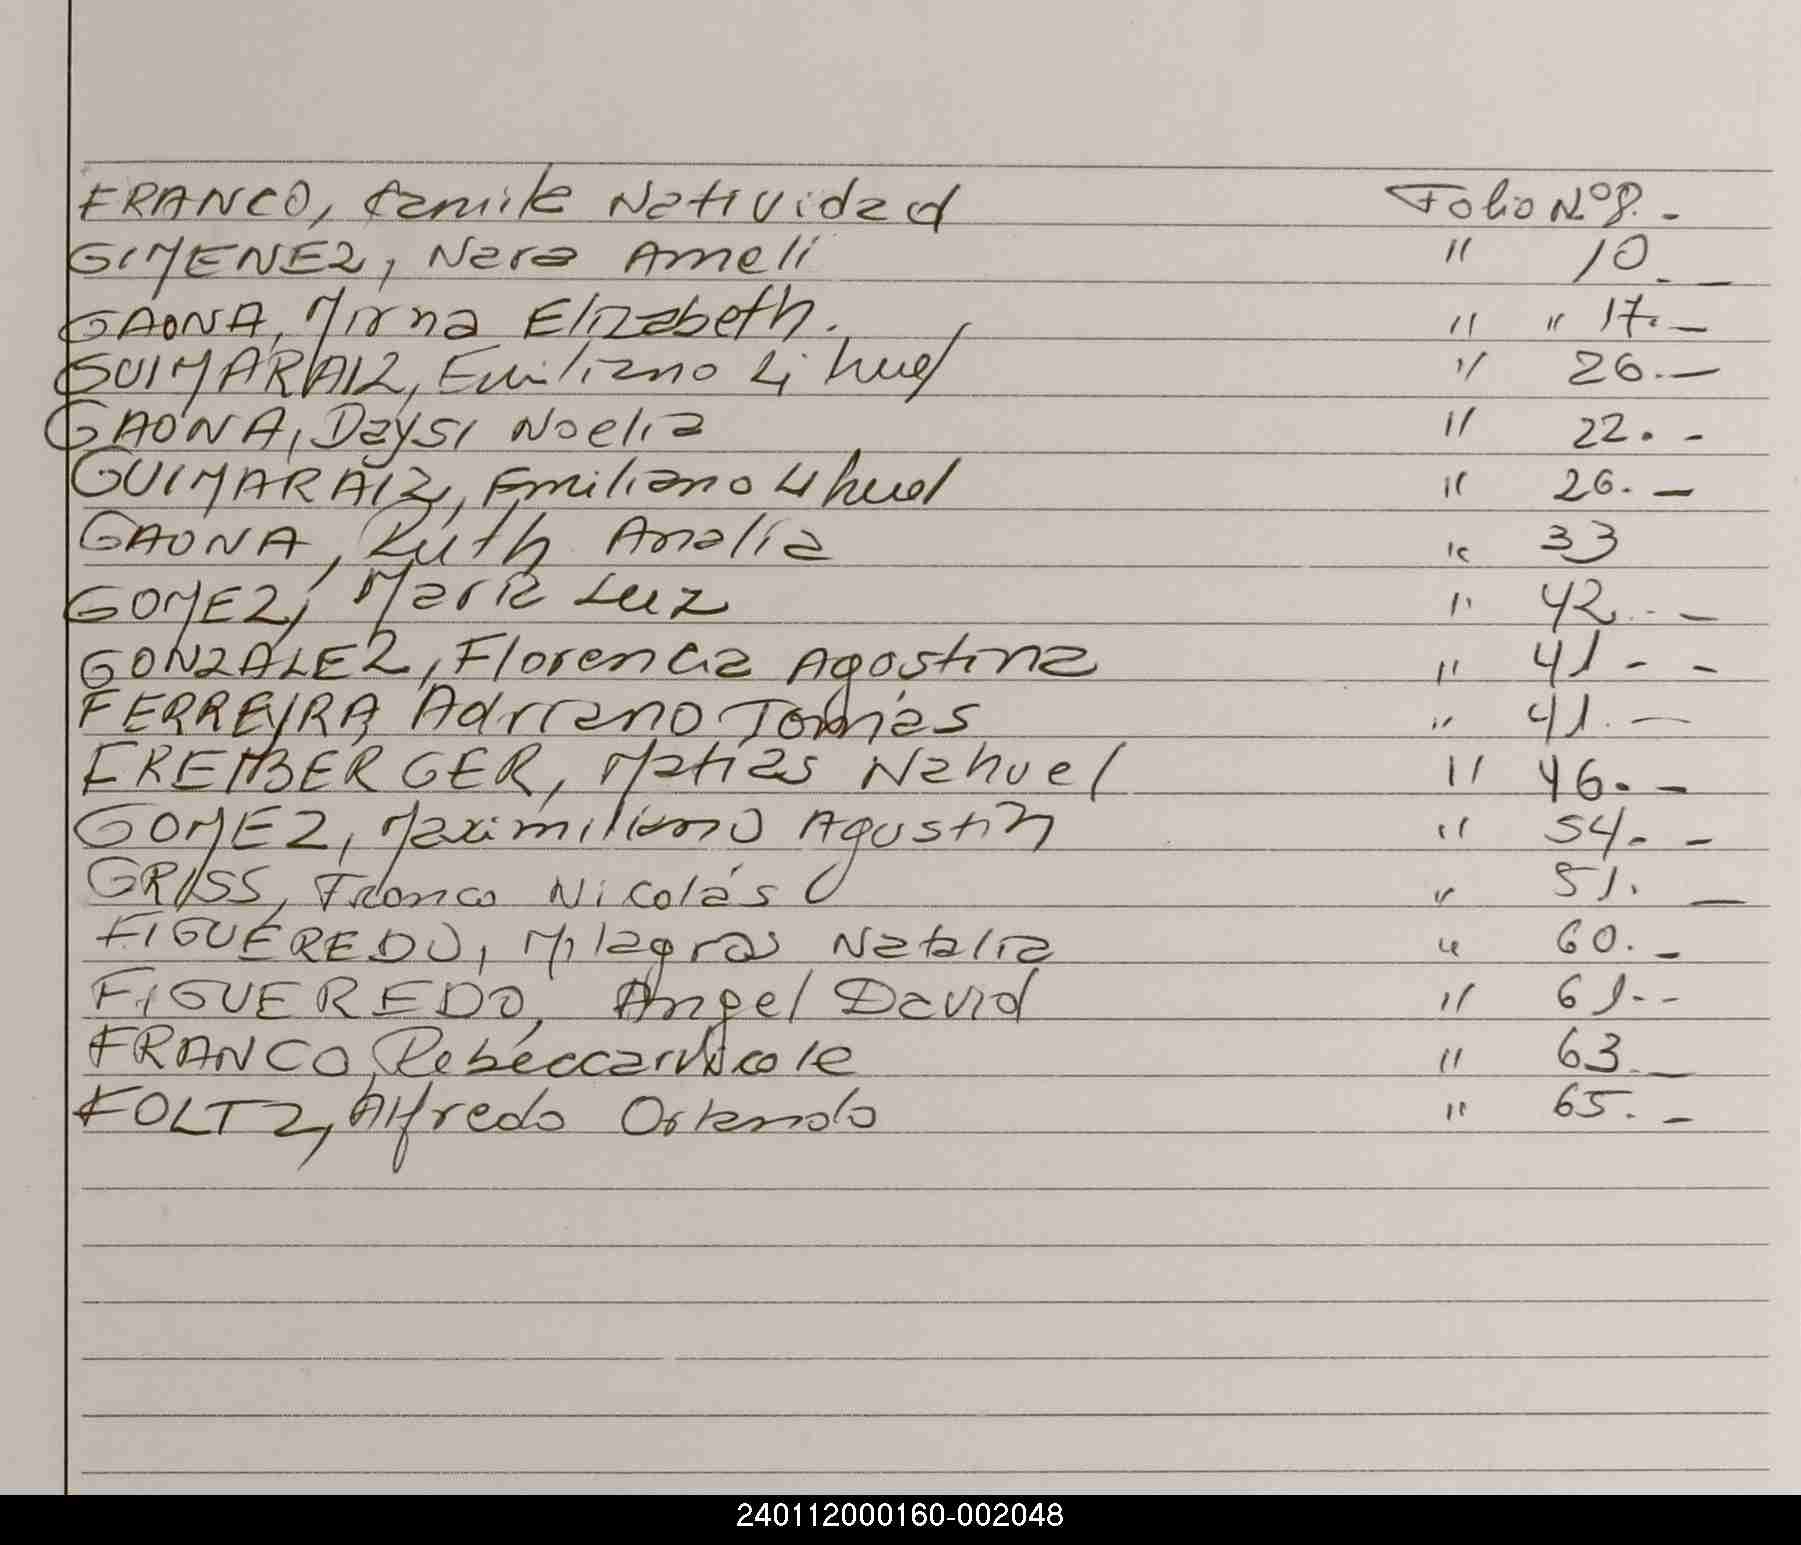 FRANCO, Camila Natividad Folio Nº 8.-
GIMENEZ, Nara Ameli " 10.-
GAONA, Mirna Elizabeth. " " 17.-
GUIMARAIZ, Emiliano Lihuel " 26.-
GAONA, Daysi Noelia " 22.-
GUIMARAIZ, Emiliano Lihuel " 26.-
GAONA, Ruth Analía " 33
GOMEZ, Maria Luz " 42.-
GONZALEZ, Florencia Agostina " 41.-
FERREYRA, Adriano Tomás " 41.-
FREMBERGER, Matías Nahuel " 46.-
GOMEZ, Maximiliano Agustín " 54.-
GRISS, Franco Nicolás " 51.-
FIGUEREDO, Milagros Natalia " 60.-
FIGUEREDO, Angel David " 61.-
FRANCO, Rebecca Nicole " 63.-
FOLTZ, Alfredo Orlando " 65.-
240112000160-002048